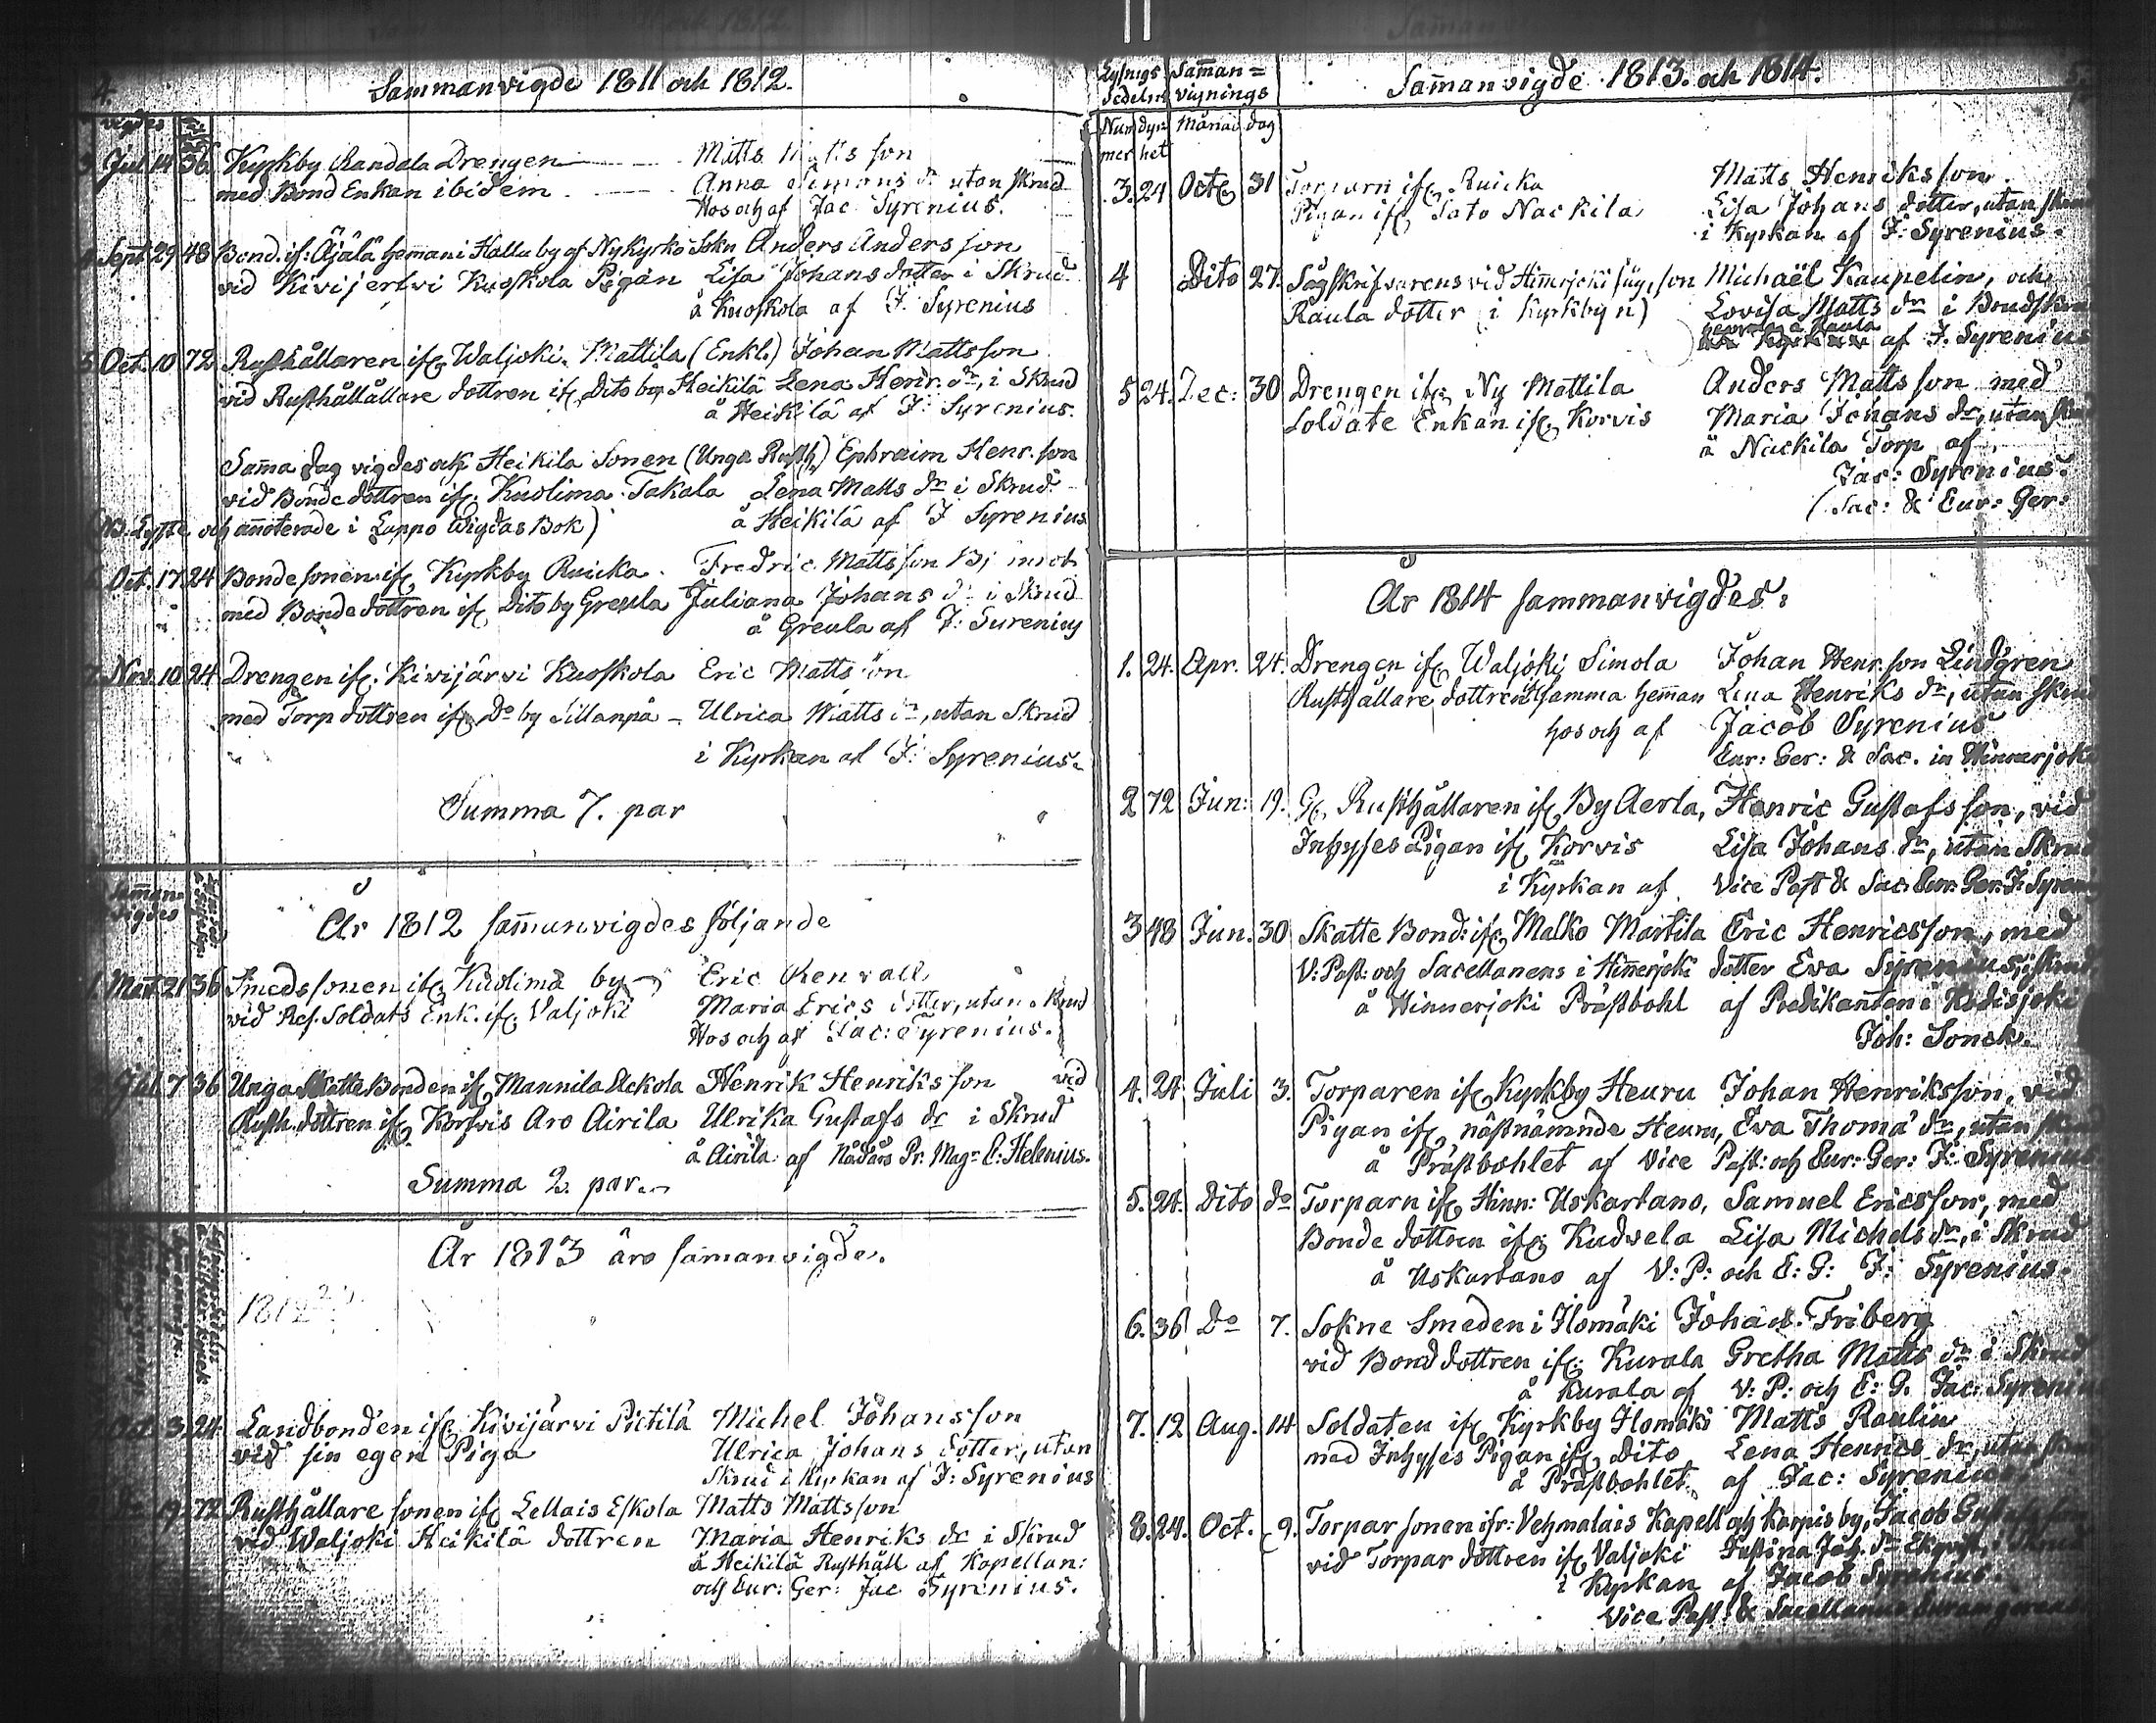 4.
Sammanvigde 1811 och 1812.
3. Jul. 14 36. Kyrkby Randela Drengen Matts Matts son
med Bond Enkan ibidem Anna Simons dr utan skrud
Hos och af Jac. Syrenius.
4 Sept 29 48 Bond. ifr: Äjälä hemman i Hallu by af Nykyrko Sokn Anders Anders son
vid Kivijerfvi Kuoskola Pigan Lisa Johans dotter i Skrud
å Kuoskola af J. Syrenius
5 Oct. 10 72 Rusthållaren ifr. Waljoki Mattila (Enkl.) Johan Matts son
vid Rusthållållare dottren ifr Dito by Heikilä Lena Henr. dr, i Skrud
å Heikilä af J: Syrenius.
Samma dag vigdes ock Heikila Sonen (Unga Rusth) Ephraim Henr. son
vid Bonde dottren ifr. Kuolima Takala Lena Matts dr i Skrud
å Heikilä af J Syrenius
(NB. Lyste och annoterade i Lappo Wigdas Bok)
6 Oct. 17 24 Bonde sonen ifr Kyrkby Ruicka. Fredric Mattsson
med Bonde dottren ifr Dito by Greula Juliana Johans dr i Skrud
å Greula af J: Syrenius
7. Nov. 10 24 Drengen ifr. Kivijärvi Kuoskola Eric Matts son
med Torp dottren ifr Do by Sillanpä Ulrica Matts dr, utan Skrud
i Kyrkan af J: Syrenius.
Summa 7. par
År 1812 sammanvigdes följande
1. Mart 21 36 Smeds sonen ifr Kuolima by Eric Renvall
vid Ref. Soldats Enk. ifr. Valjoki Maria Erics dotter, utan skrud
Hos och af Jac: Syrenius.
Jul 7 36 Unga Skatte Bonden ifr Mannila Uckola Henrik Henriks son vid
Rusth. dottren ifr Korfvis Aro Airila Ulrika Gustafs dr i Skrud
å Airila af Nådårs Pr. Magr E: Helenius.
Summa 2. par.
År 1813 äro sammanvigde.
1812
Oct. 3 24 Landbonden ifr Kivijärvi Pietilä Michel Johansson
vid sin egen Piga Ulrica Johans dotter, utan
Skrud i Kyrkan af J: Syrenius
19. 72 Rusthållare sonen ifr Lellais Eskola Matts Matts son
vid Waljoki Heikilä dottren Maria Henriks dr i Skrud
å Heikilä Rusthåll af Kapellan:
och Cur: Ger: Jac Syrenius.
Lysnigs Samman=
Sedelns vignings
Num dyr Månad dag
mer het
Sammanvigde 1813. och 1814.
5.
3. 24 Octr 31 Torparn ifr Ruicka Matts Henriks son
Pigan ifr Sato Nackila Lisa Johans dotter, utan skrud
i Kyrkan af J: Syrenius.
4 Dito 27. Sågskrifvarens vid Hinnerjoki såg, son Michaël Kaupelin, och
Raula dotter (i Kyrkbyn) Lovisa Matts dr i Brudskrud
af J. Syrenius
5 24. Dec: 30 Drengen ifr. Ny Mattila Anders Matts son med
Soldate Enkan ifr. Korvis Maria Johans dr, utan skrud
å Nackila Torp af
Jac: Syrenius.
(Sac: & Cur: Ger:
År 1814 sammanvigdes:
1. 24. Apr. 24. Drengen ifr Waljoki Simola Johan Henr. son Lindgren
Rusthållare dottren samma hemman Lena Henriks dr, utan skrud
hos och af Jacob Syrenius
Cur: Ger: & Sac. in Hinnerjoki
2 72 Jun: 19. Gl. Rusthållaren ifr By Aerla, Henric Gustafs son, vid
Inhyses Pigan ifr Korvis Lisa Johans dr, utan Skrud
i Kyrkan af Vice Past & Sac: Cur: Ger: J: Syreni
3 48 Jun. 30 Skatte Bond: ifr. Malko Martila Eric Henricsson, med
V: Past: och Sacellanens i Hinnerjoki dotter Eva Syrenius, i skrud
å Hinnerjoki Prästbohl af Predikanten i Hodisjoki
Joh: Sonck.
4. 24. Juli 3. Torparen ifr Kyrkby Heuru Johan Henriksson, vid
Pigan ifr. nästnämnde Heuru, Eva Thomä dr, utan skrud
å Prästbohlet af Vice Past: och Cur: Ger: J: Syrenius
5. 24. Dito do Torparn ifr. Hinn: Uskartano, Samuel Ericsson, med
Bonde dottren ifr. Kudvela Lisa Michels dr, i Skrud
å Uskartano af V: P: och C: G: J: Syrenius.
6. 36 Do 7. Sokne Smeden i Ilomäki Johan Friberg
vid Bonddottren ifr: Kurala Gretha Matts dr i Skrud
å Kurala af V: P: och C: G. Jac: Syrenius
7. 12 Aug. 14 Soldaten ifr Kyrkby Ilomäki Matts Raulin
med Inhyses Pigan ifr Dito Lena Henrics dr, utan skrud
å Prästbohlet af Jac: Syrenius
8. 24. Oct. 9. Torpar sonen ifr: Vehmalais Kapell och Karpis by, Jacob
vid Torpar dottren ifr Valjoki Justina Joh. dr Ekqvist
i Kyrkan af Jacob Syrenius.
Vice Past: &